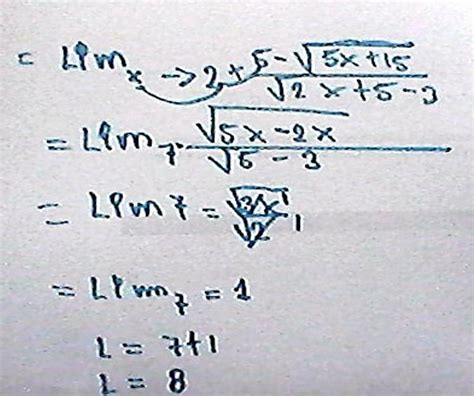 = Lim x → 2 + 5 - √5x + 15 / √2x + 5 - 3
= Lim 7 · √5x - 2x / √5 - 3
= Lim 7 = √3x / √2 1
= Lim 7 = 1
L = 7+1
L = 8